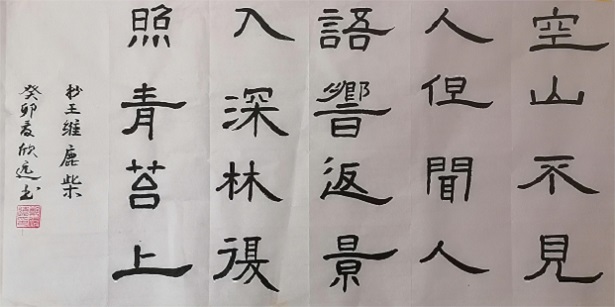 空山不見
人但聞人
語響返景
入深林復
照青苔上
抄王維鹿柴
癸卯夏欣远书